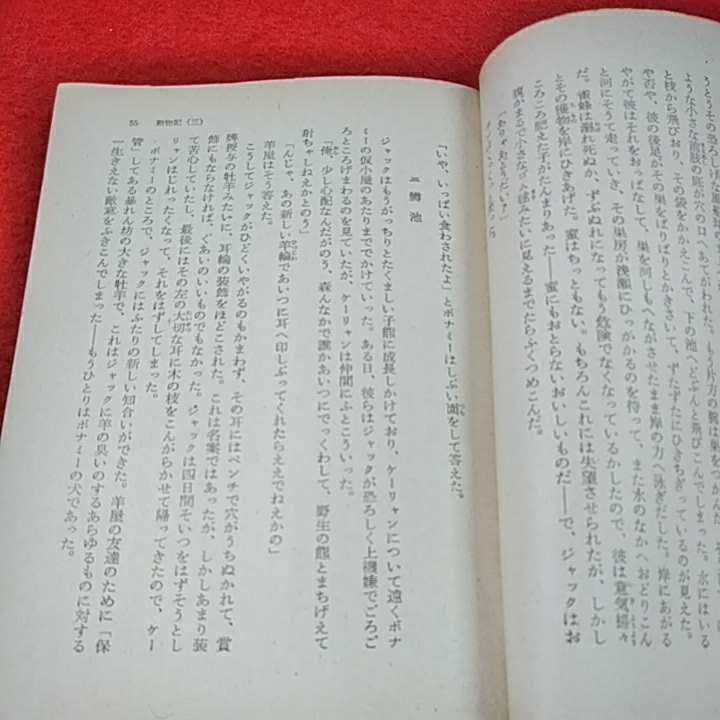 うとうその恐ろしげた
ような小さな前肢の底が穴の口へ
と枝から飛びおり、その袋をかかえこんで、下の池へどぶんと飛びこんでしまった
や否や、彼の後足がその巣をばりばりとかきさいて、ずたずたにひきちぎっているのが見えた。
やがて彼はそれをおっぱなして、巣を河しもへながさせたまま岸の方へ泳ぎだした。岸にあがる
と河にそうて走っていき、その巣房が浅瀬にひっかかるのを待って、また水のなかへおどりこん
だ。雀蜂は溺れ死ぬか、ずぶぬれになってもう危険でなくなっているかしたので、彼は意気揚々
とその獲物を岸にひきあげた。蜜はちっともない。もちろんこれには失望させられたが、しかし
ころころ肥えた子がたんまりあった――蜜にもおとらないおいしいものだ――で、ジャックはお
腹がまるで小さなゴム毬みたいに見えるまでたらふくつめこんだ。
「いや、いっぱい食わされたよ」とボナミーはしぶい面をして答えた。
三 鱒池
ジャックはもうがっちりとたくましい子熊に成長しかけており、ケーリャンについて遠くボナ
ミーの仮小屋のあたりまででかけていった。ある日、彼らはジャックが恐ろしく上機嫌でごろご
ろところげまわるのを見ていたが、ケーリャンは仲間にふとこういった。
「俺、少し心配なんだがのう、森んなかで誰かあいつにでっくわして、野生の熊とまちげえて
射ちゃしねえかとのう」
「んじゃ、あの新しい羊輪であいつに耳へ印しぶってくれたらええでねえかの」
羊屋はそう答えた。
こうしてジャックがひどくいやがるのもかまわず、その耳にはペンチで穴がうちぬかれて、賞
牌授与の牡羊みたいに、耳輪の装飾をほどこされた。これは名案ではあったが、しかしあまり装
飾にもならなければ、ぐあいのいいものでもなかった。ジャックは四日間そいつをはずそうとし
て苦心していたし、最後にはその左の大切な耳に木の枝をこんがらかせて帰ってきたので、ケー
リャンはじれったくなって、それをはずしてしまった。
ボナミーのところで、ジャックにはふたりの新しい知合いができた。羊屋の友達のために「保
管」してある暴れん坊の大きな牡羊で、これはジャックに羊の臭いのするあらゆるものに対する
一生きえない敵意をふきこんでしまった――もうひとりはボナミーの犬であった。
55 動物記(三)